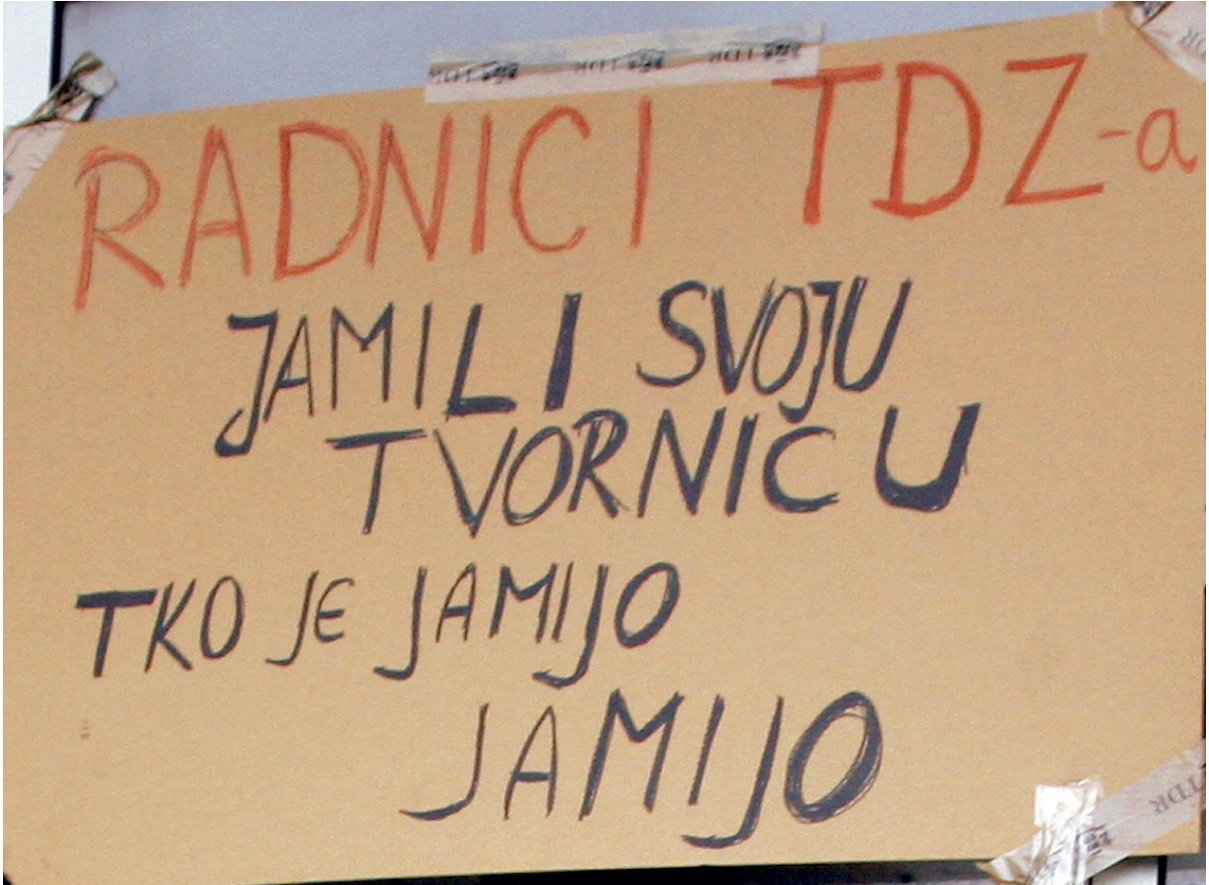 RADNICI TDZ-a
JAMILI SVOJU
TVORNICU
TKO JE JAMIJO
JAMIJO
TDR